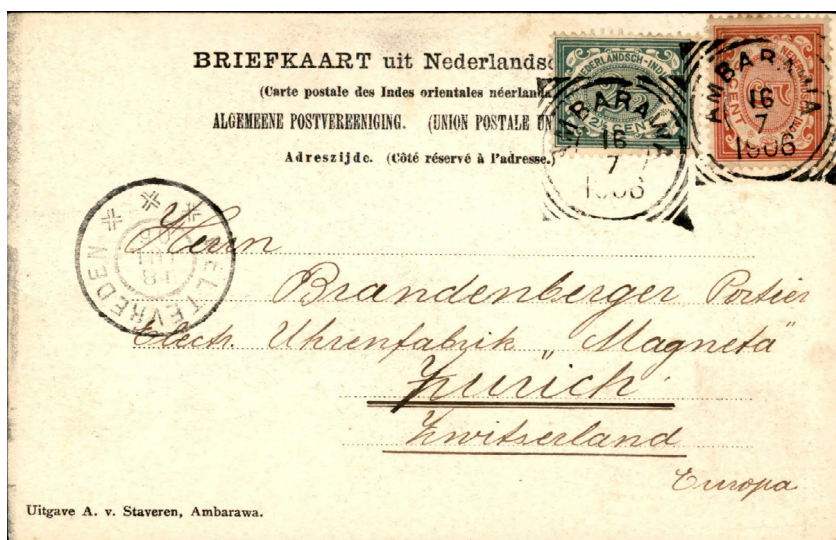 BRIEFKAART uit Nederlandsc
(Carte postale des Indes orientales néerlanda
ALGEMEENE POSTVEREENIGING. (UNION POSTALE UN
Adreszijde. (Côté réservé à l'adresse.)
NEDERLANDSCH-INDIË
CENT
AMBARAWA
16
7
1906
AMBARAWA
16
7
1906
WELTEVREDEN
18
Herrn
Brandenberger Portier
Electr. Uhrenfabrik „Magneta"
Zürich.
Zwitserland
Europa
Uitgave A. v. Staveren, Ambarawa.